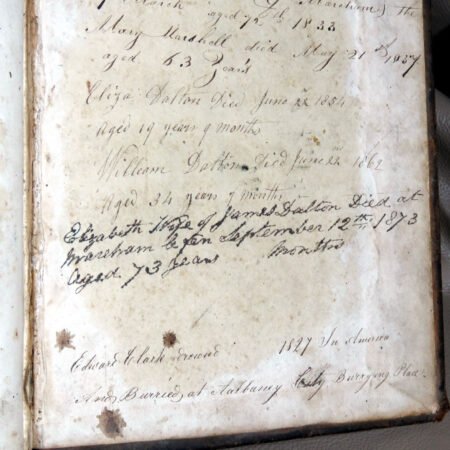 aged 72th 1833
Mary Marshall died May 21st 1857
aged 63 years
Eliza Dalton Died June 22 1854
Aged 19 years 9 months
William Dalton Died June 22 1862
Aged 34 years 7 months
Elizabeth Wife of James Dalton Died at
Mareham le fen September 12th 1873
Aged 73 years months
Edward Clark drowned 1827 In America
And Burried at City Burrying Place